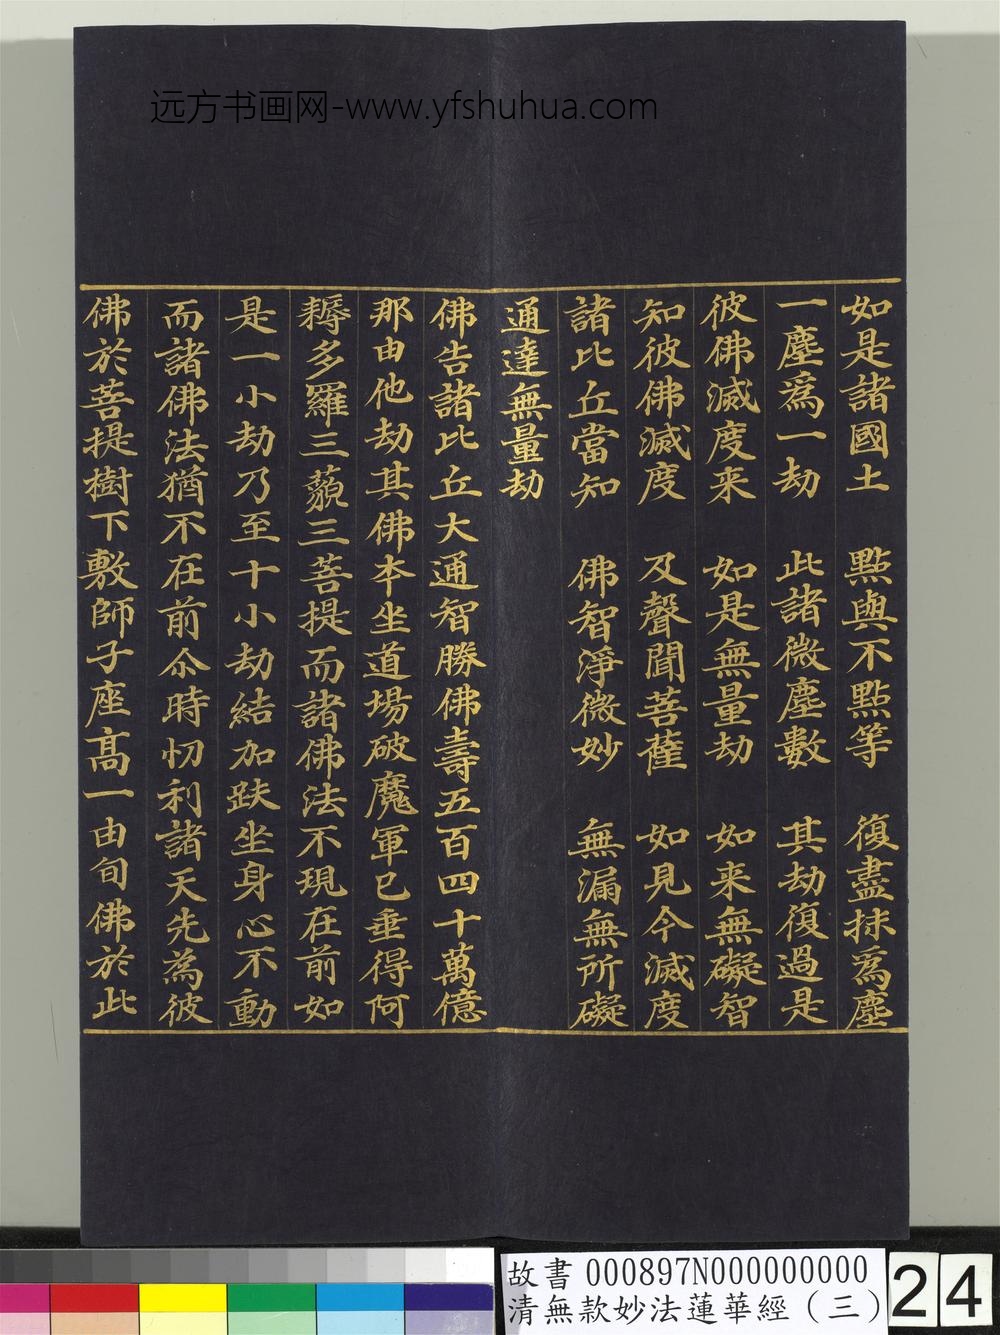 远方书画网-www.yfshuhua.com
如是諸國土 點與不點等 復盡抹爲塵
一塵爲一劫 此諸微塵數 其劫復過是
彼佛滅度来 如是無量劫 如来無礙智
知彼佛滅度 及聲聞菩薩 如見今滅度
諸比丘當知 佛智淨微妙 無漏無所礙
通達無量劫
佛告諸比丘大通智勝佛壽五百四十萬億
那由他劫其佛本坐道場破魔軍已垂得阿
耨多羅三藐三菩提而諸佛法不現在前如
是一小劫乃至十小劫結加趺坐身心不動
而諸佛法猶不在前尒時忉利諸天先為彼
佛於菩提樹下敷師子座髙一由旬佛於此
故書 000897N000000000
清無款妙法蓮華經(三)
24